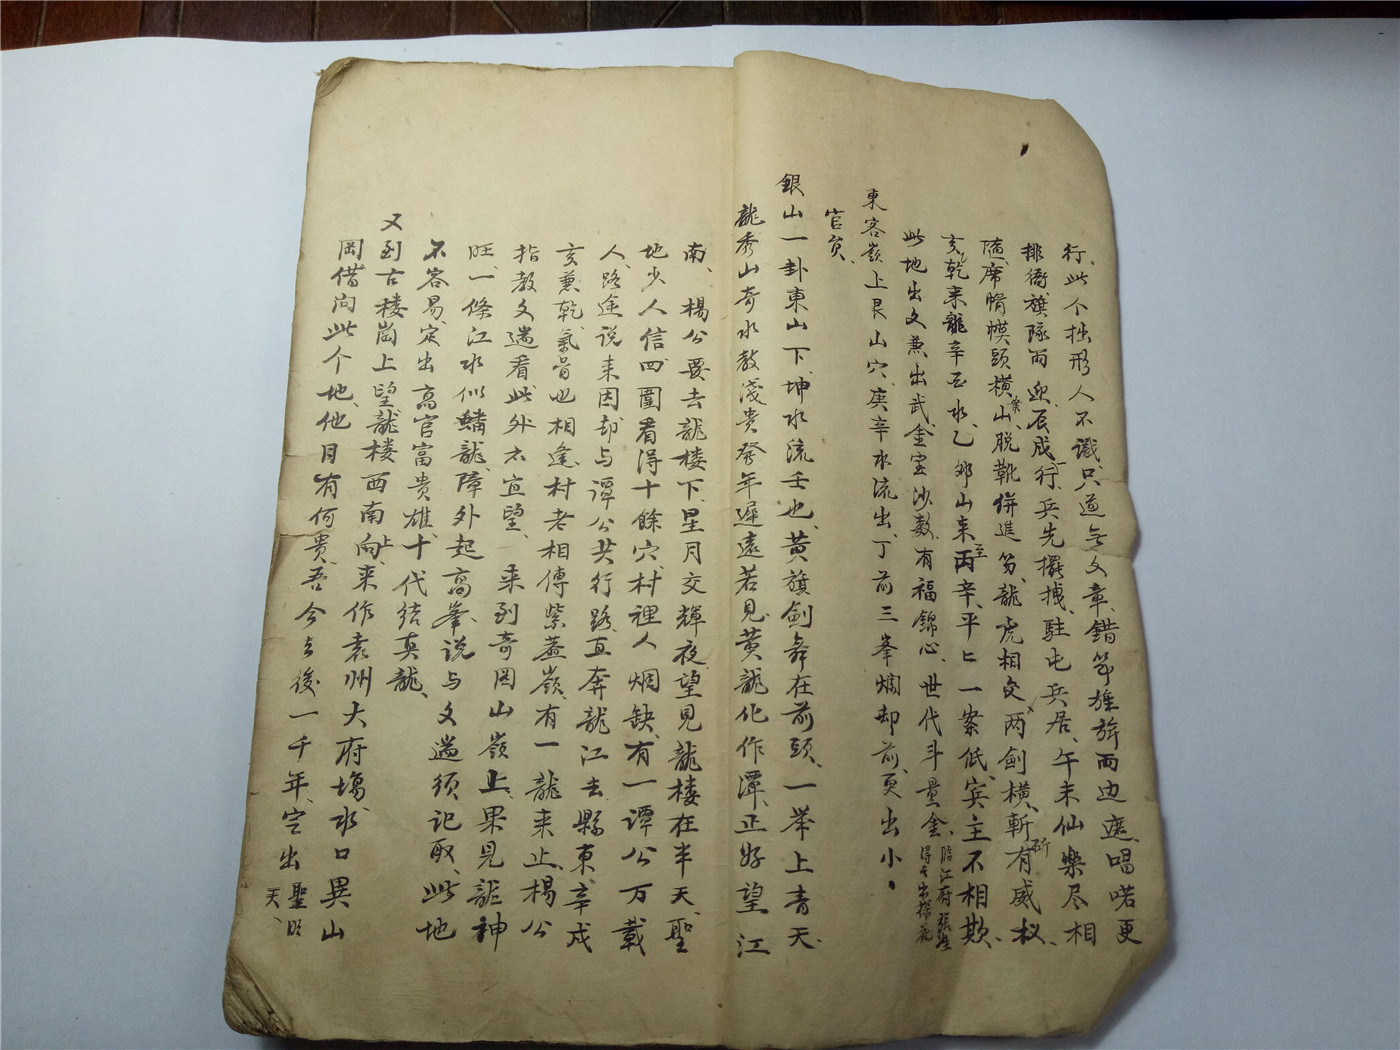 行、此个拙形人不識、只道無文章、錯節旌旂両边遮、唱喏更
排衙旗隊両迎、辰戌行兵先擺拽、駐屯兵居、午未仙樂尽相
隨、席帽幞頭横案山、脱靴併進笏、龍虎相交両劍横、斬斫有威权、
亥乾来龍辛酉水、乙夘山来丙至辛、平匕一案低、宾主不相欺、
此地出文兼出武、金宝沙数有福錦心、世代斗量金、臨江府張 得之出探花
東客嶺上艮山穴、庚辛水流出丁前三峯烱却前、更出小、
官员、
銀山一卦東山下、坤水流壬也、黄旗劍舞在前頭、一举上青天、
龍秀山奇水教淺貴發年遲遠若見黄龍化作潭、正好望江
南、楊公要去龍楼下、星月交輝夜、望見龍楼在半天、聖
地少人信四圍看得十餘穴、村裡人烟缺、有一譚公万載
人、路途説来因却与譚公共行路、直奔龍江去縣東辛戌
亥兼乾、氣骨也相逢村老相傳紫蓋嶺、有一龍来止、楊公
指教文遄看此外不宜望、来到奇岡山嶺上果見龍神
旺、一條江水似鱗龍、障外起高峯、说与文遄须记取、此地
不容易、定出高官富贵雄、十代结真龍、
又到古楼崗上望龍楼西南向上来作袁州大府塲、水口異山
岡借问此个地、他日有何贵、吾今去後一千年、定出聖明
天、